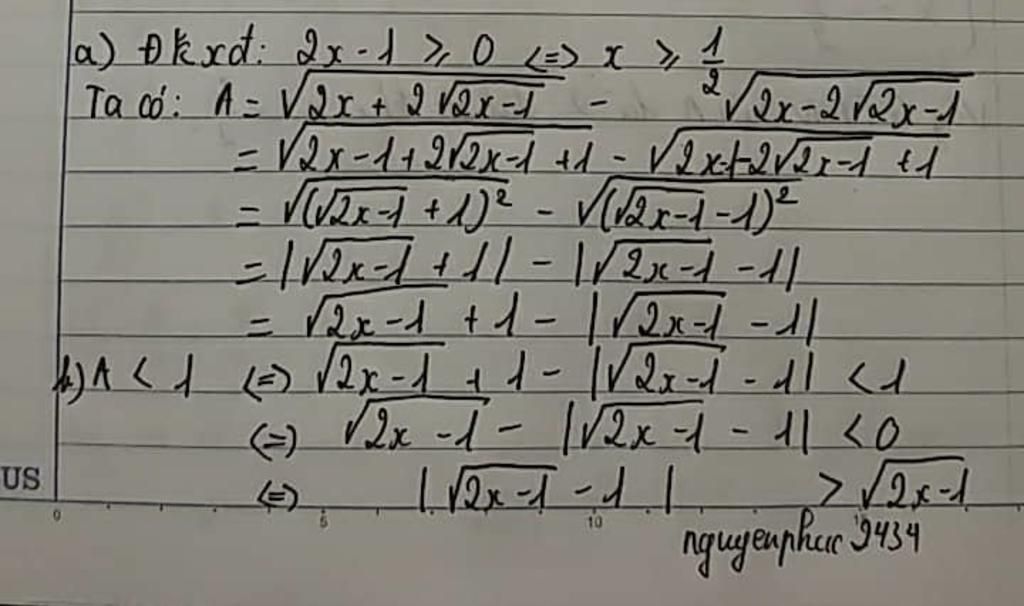 a) Đkxđ: 2x - 1 ≥ 0 <=> x ≥ 1/2
Ta có: A = √(2x + 2√(2x-1)) - √(2x - 2√(2x-1))
= √(2x - 1 + 2√(2x-1) + 1) - √(2x-1-2√(2x-1) + 1)
= √((√(2x-1) + 1)²) - √((√(2x-1) - 1)²)
= |√(2x-1) + 1| - |√(2x-1) - 1|
= √(2x-1) + 1 - |√(2x-1) - 1|
b) A < 1 <=> √(2x-1) + 1 - |√(2x-1) - 1| < 1
<=> √(2x-1) - |√(2x-1) - 1| < 0
<=> |√(2x-1) - 1| > √(2x-1)
US
0 5 10
nguyenphuc 9434